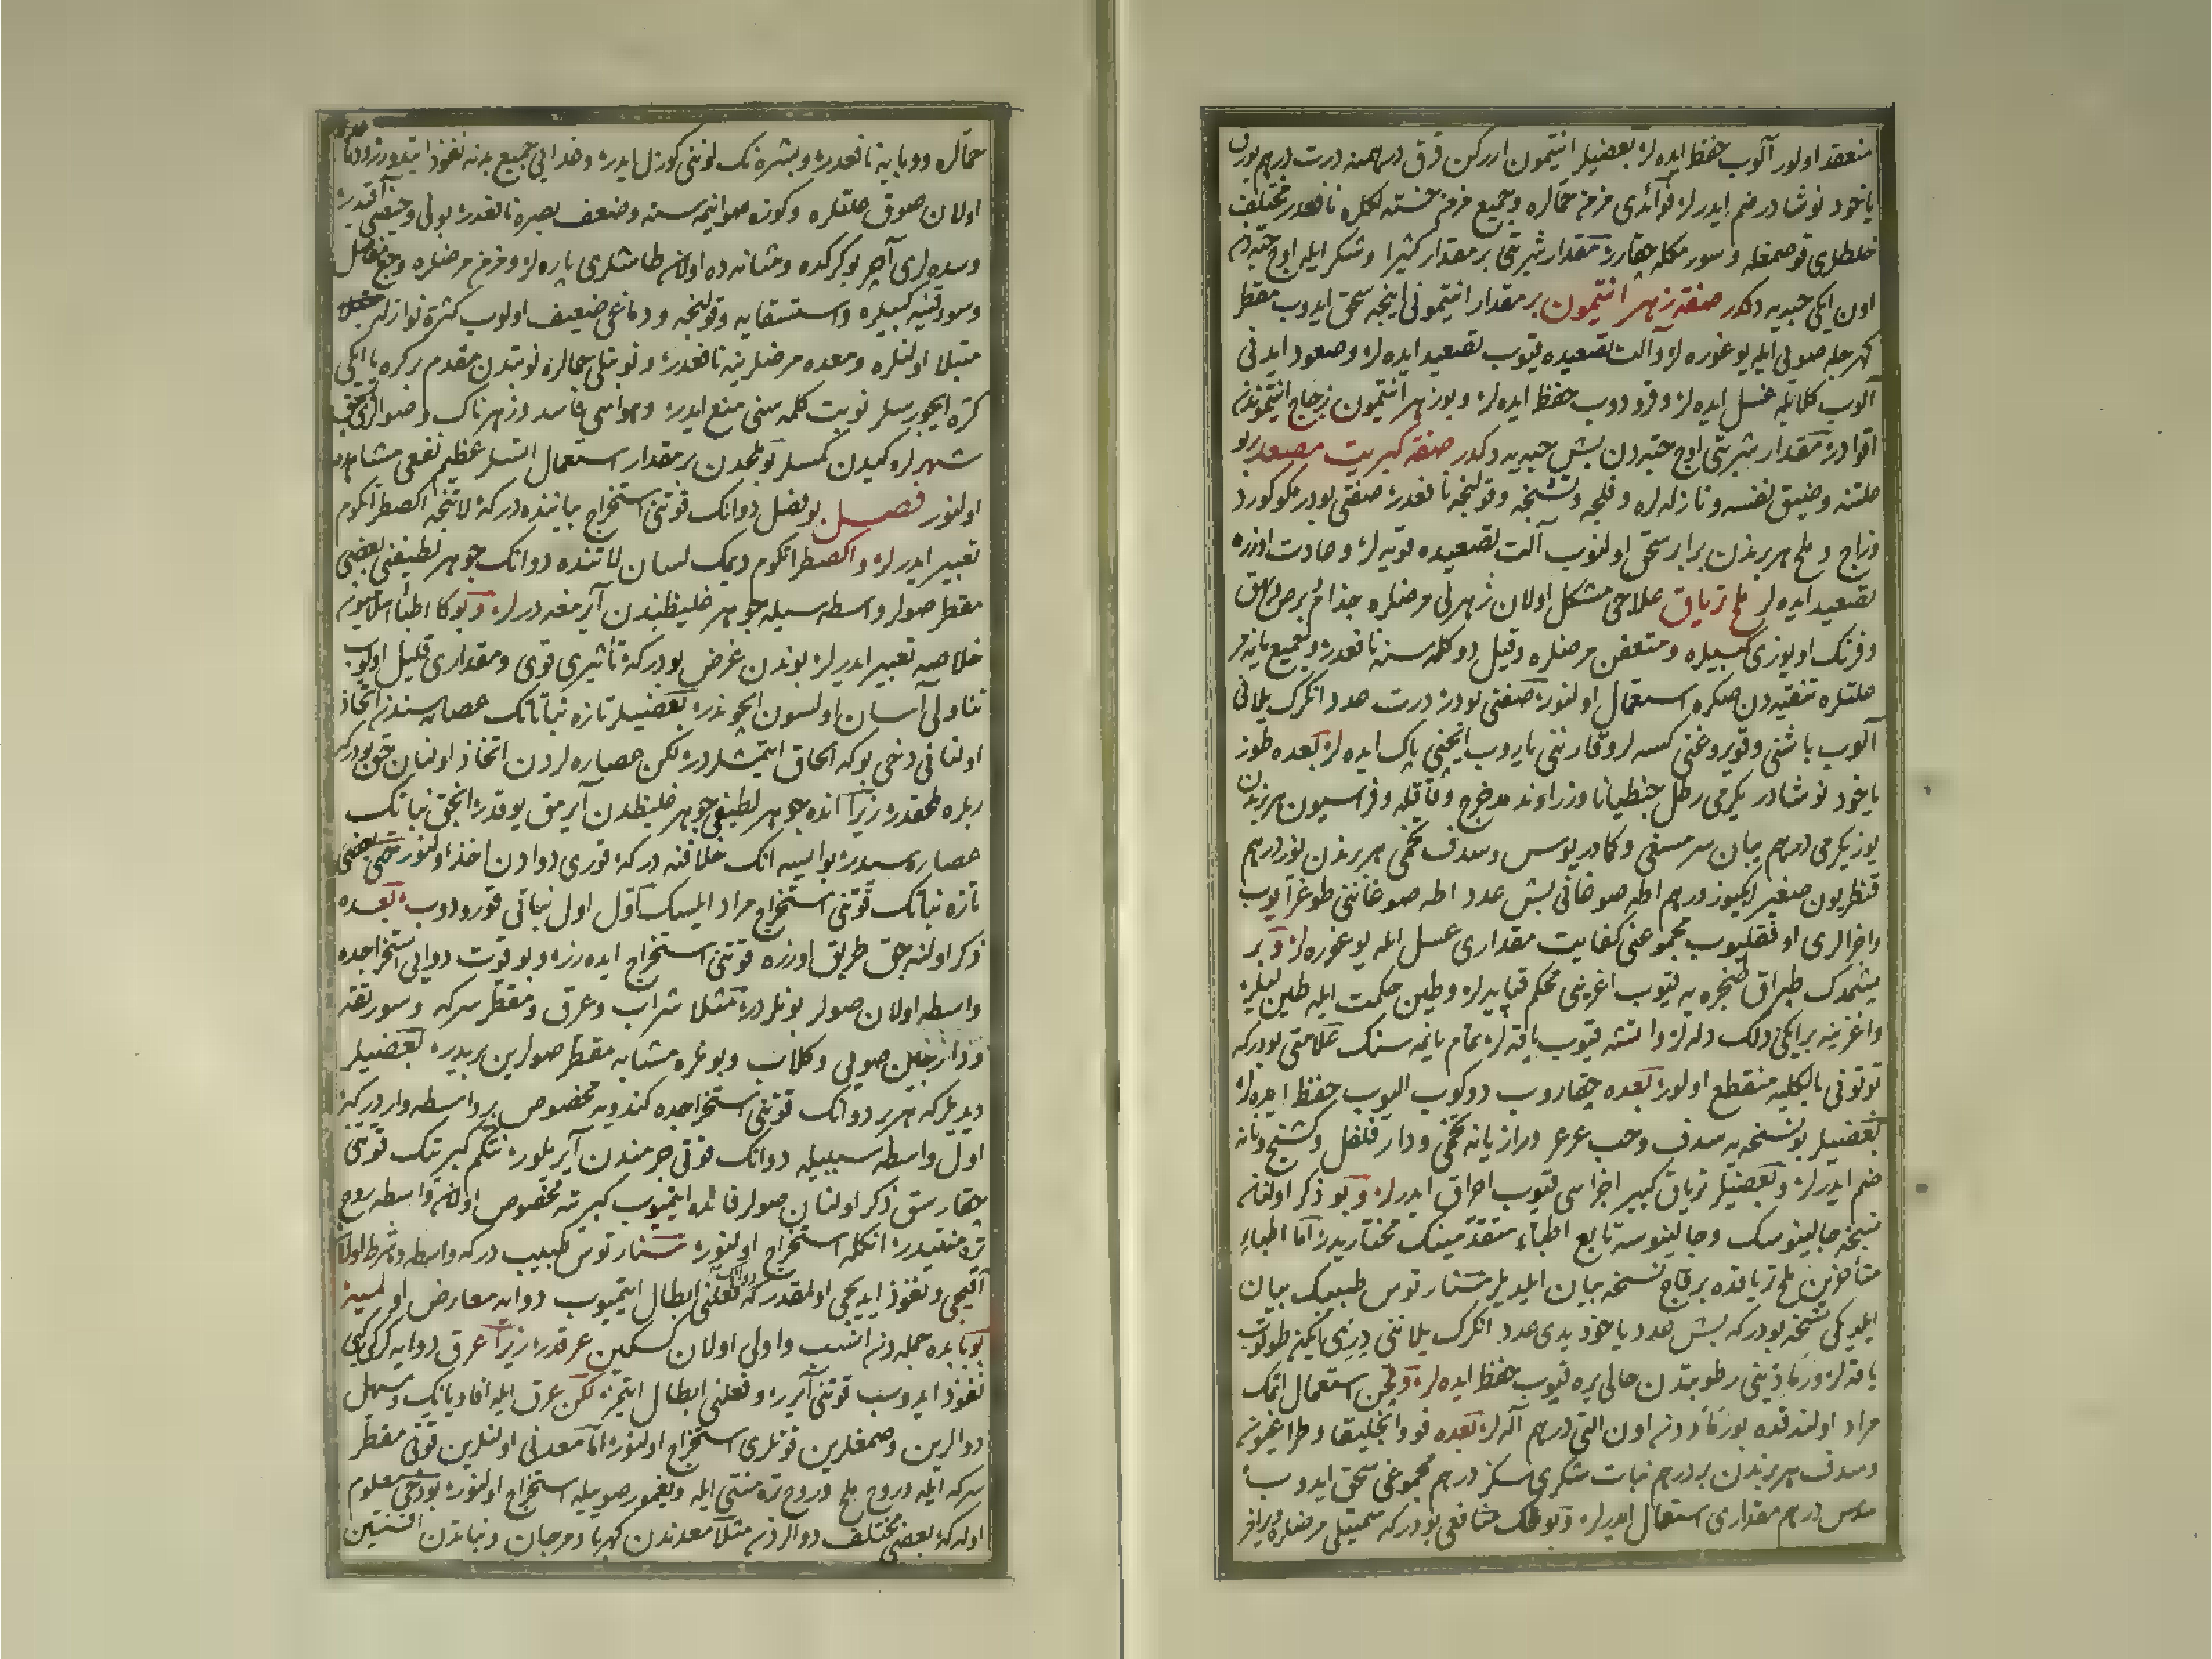 منعقد اولور آلوب حفظ ايده لر بعضيلر انتيمون ارركن قرق درهمنه درت درهم بورق
ياخود نوشادر ضم ايدرلر فوائدى مزمن حمالره وجميع مزمن خسته لكلره نافعدر مختلف
خلطلرى قوصمغله و سورمكله چقارر مقدار شربتى بر مقدار كثيرا وشكر ايله اوچ حبه دن
اون ايكى حبه يه دكدر صفة زهر انتيمون بر مقدار انتيمونى اينجه سحق ايدوب مقطر
سركه صويى ايله يوغوره لر و آلت تصعيده قيوب تصعيد ايده لر وصعود ايدنى
آلوب كلابله غسل ايده لر وقرودوب حفظ ايده لر وبو زهر انتيمون زجاج انتيموندن
اقوادر مقدار شربتى اوچ حبه دن بش حبه يه دكدر صفة كبريت مصعد ربو
علتنه وضيق نفسه ونازله لره وفلجه وتشنجه وقولنجه نافعدر صفتى بودر كوكورد
وزاج وملح هر برندن برابر سحق اولنوب آلت تصعيده قويه لر وعادت اوزره
تصعيد ايده لر ملح ترياق علاجى مشكل اولان زهرلى مرضلره جذام برص وبهق
وفرنك اويوزى كبيلره ومتعفن مرضلره وقيل دوكلمه سنه نافعدر وجميع يانه مز
علتلره تنقيه دن صكره استعمال اولنور صفتى بودر درت عدد انكرك يلانى
آلوب باشنى وقويروغنى كسه لر وقارننى ياروب ايچنى پاك ايده لر بعده طوز
ياخود نوشادر يكرمى رطل جنطيانا وزراوند مدحرج وقاقله وفراسيون هر برندن
يوز يكرمى درهم يبان سرمسغى وكمادريوس وسدف تخمى هر برندن يوز درهم
قنطريون صغير ايكيوز درهم اطه صوغانى بش عدد اطه صوغاننى طوغرايوب
واجزالرى اوفقليوب مجموعنى كفايت مقدارى عسل ايله يوغوره لر وبر
پشمدك طپراق طنجره يه قيوب اغزينى محكم قپايه لر وطين حكمت ايله طينليلر
واغزينه بر ايكى دلك دله لر واتشه قيوب ياقه لر تمام يانمه سنك علامتى بودر كه
توتونى بالكليه منقطع اولور بعده چقاروب دوكوب اليوب حفظ ايده لر
بعضيلر بو نسخه يه سدف وحب عرعر ورازيانه تخمى ودار فلفل وكشنج ونانه
ضم ايدرلر وبعضيلر ترياق كبير اجزاسى قيوب احراق ايدرلر وبو ذكر اولنان
نسخه جالينوسك وجالينوسه تابع اطباء متقدمينك مختاريدر اما اطباء
متأخرين ملح ترياقده بر قاچ نسخه بيان ايلديلر سنارتوس طبيبك بيان
ايلديكى نسخه بودر كه بش عدد ياخود يدى عدد انكرك يلاننى ديرى ايكن طوتوب
ياقه لر ورمادينى رطوبتدن خالى يره قيوب حفظ ايده لر وقچن استعمال اتمك
مراد اولندقده بو رماددن اون التى درهم آله لر بعده قودا انجليقا وطراغيون
وسدف هر برندن بر درهم نبات شكرى سكز درهم مجموعنى سحق ايدوب
سدس درهم مقدارى استعمال ايدرلر وبو ملحك منافعى بودر كه سميتلى مرضلره ويرانز
حمالره ووبايه نافعدر وبشره نك لوننى كوزل ايدر وغدايى جميع بدنه نفوذ ايتدورر ودمادن
اولان صوق علتلره وكوزه صو اينمه سنه وضعف بصره نافعدر بولى وحيضى آقدر
وسده لرى آچر بوكركده ومثانه ده اولان طاشلرى پاره لر ومزمن مرضلره وجع مفاصل
وسوء قنيه كبيلره واستسقايه وقولنجه ودماغى ضعيف اولوب كثرة نوازله
مبتلا اولنلره ومعده مرضلرينه نافعدر ونوبتلى حمالرده نوبتدن مقدم بر كره يا ايكى
كره ايچورسلر نوبت كلمه سنى منع ايدر وهواسى فاسد وزهرناك وصولرى متعفن
شهرلره كيدن كمسلر بو ملحدن بر مقدار استعمال اتسلر عظيم نفعى مشاهده
اولنور فصل بو فصل دوانك قوتنى استخراج بياننده در كه لاتنجه اكصطراكوم
تعبير ايدرلر واكصطراكوم ديمك لسان لاتنده دوانك جوهر لطيفنى بعضى
مقطر صولر واسطه سيله جوهر غليظندن آيرمغه درلر وبوكا اطباء اسلاميون
خلاصه تعبير ايدرلر بوندن غرض بودر كه تأثيرى قوى ومقدارى قليل اولوب
تناولى آسان اولسون ايچوندر بعضيلر تازه نباتاتك عصاره سندن اتخاذ
اولنانى دخى بوكه الحاق ايتمشلردر لكن عصاره لردن اتخاذ اولنان حق بودر كه
ربلره ملحقدر زيرا انده جوهر لطيفى جوهر غليظدن آيرمق يوقدر انجق نباتك
عصاره سيدر بو ايسه انك خلافنه در كه قورى دوادن اخذ اولنور حتى بعضى
تازه نباتك قوتنى استخراج مراد ايلسك اول اول نباتى قورودوب بعده
ذكر اولنه جق طريق اوزره قوتنى استخراج ايده رز وبو قوت دوايى استخراجده
واسطه اولان صولر بونلردر مثلا شراب وعرق ومقطر سركه وسورنقد
ودارچين صويى وكلاب وبونلره مشابه مقطر صولرين بريدر بعضيلر
ديديلر كه هر بر دوانك قوتنى استخراجده كندويه مخصوص بر واسطه واردر كه
اول واسطه سببيله دوانك قوتى جرمندن آيريلور نتكم كبريتك قوتنى
چقارمقده ذكر اولنان صولر فائده ايتميوب كبريته مخصوص اولان واسطه روح
ترمنتيدر انكله استخراج اولنور سنارتوس طبيب دركه واسطه ده شرط اولان
آليجى ونفوذ ايديجى اولمقدر كه دوانك فعلنى ابطال ايتميوب دوايه معارض اولميه
بو بابده جمله دن انسب واولى اولان تسكين عرقدر زيرا عرق دوايه كركى كبى
نفوذ ايدوب قوتنى آيرر وفعلنى ابطال ايتمز لكن عرق ايله افاويانك ومسهل
دوالرين وصمغلرين قوتلرى استخراج اولنور اما معدنى اولنلرين قوتى مقطر
سركه ايله وروح ملح وروح ترمنتى ايله ويغمور صويله استخراج اولنور بودخى معلوم
اوله كه بعضى مختلف دوالردن مثلا معدندن كهربا ومرجان ونباتدن افسنتين